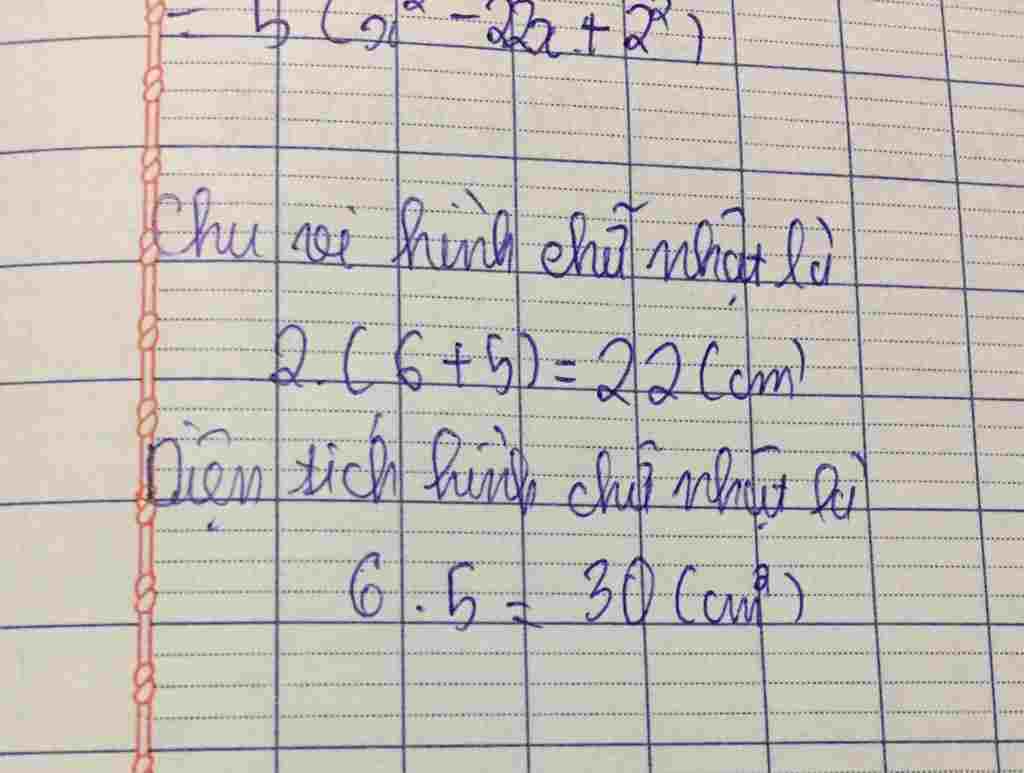 = 5 (x² - 22x + 2²)
Chu vi hình chữ nhật là
2.(6+5) = 22 (cm)
Diện tích hình chữ nhật là
6 . 5 = 30 (cm²)